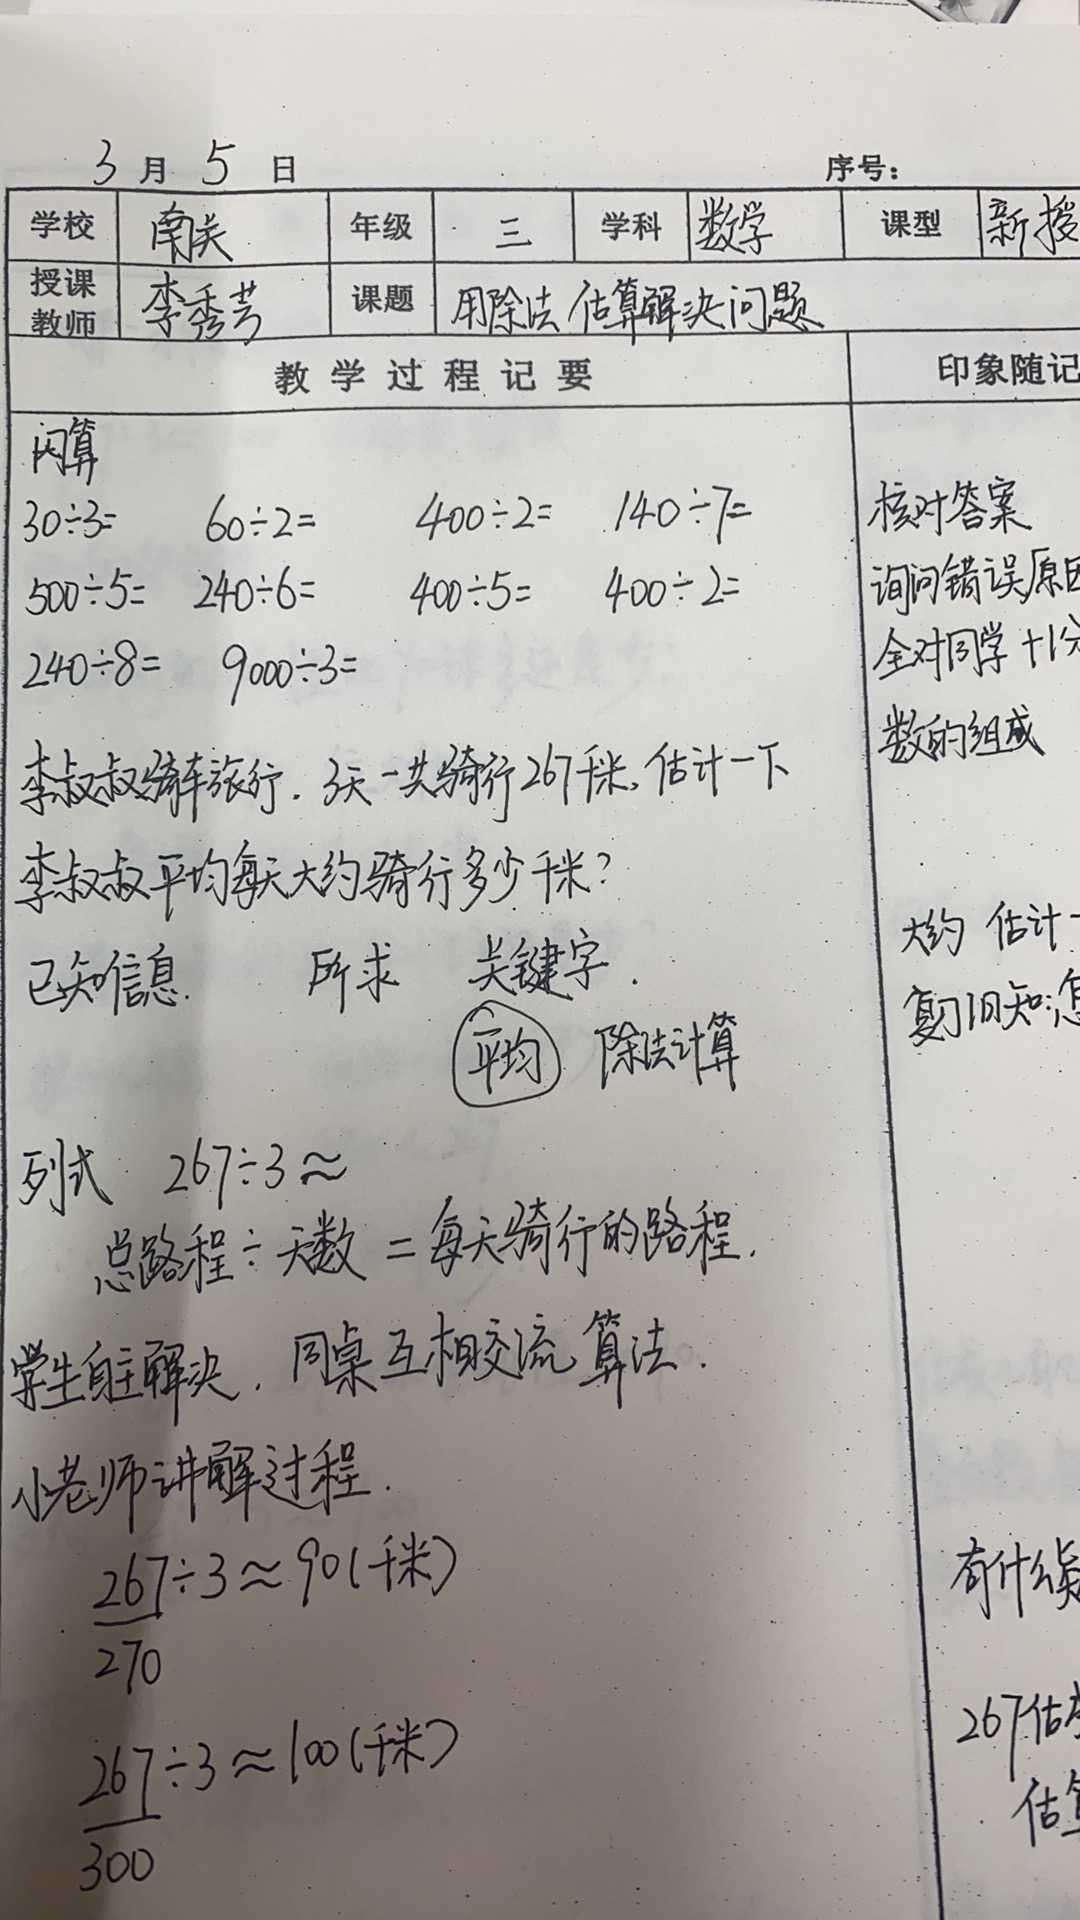 3月5日 序号：
学校 南关 年级 三 学科 数学 课型 新授
授课教师 李秀芳 课题 用除法估算解决问题
教学过程记要 印象随记
闪算
30÷3= 60÷2= 400÷2= 140÷7= 核对答案
500÷5= 240÷6= 400÷5= 400÷2= 询问错误原因
240÷8= 9000÷3= 全对同学+1分
数的组成
李叔叔骑车旅行，3天一共骑行267千米，估计一下
李叔叔平均每天大约骑行多少千米？
大约 估计一
已知信息. 所求 关键字.
复习旧知:怎
平均 除法计算
列式 267÷3≈
总路程÷天数=每天骑行的路程.
学生自主解决，同桌互相交流算法.
小老师讲解过程.
267÷3≈90(千米) 有什么
270
267÷3≈100(千米) 267估
300 估算